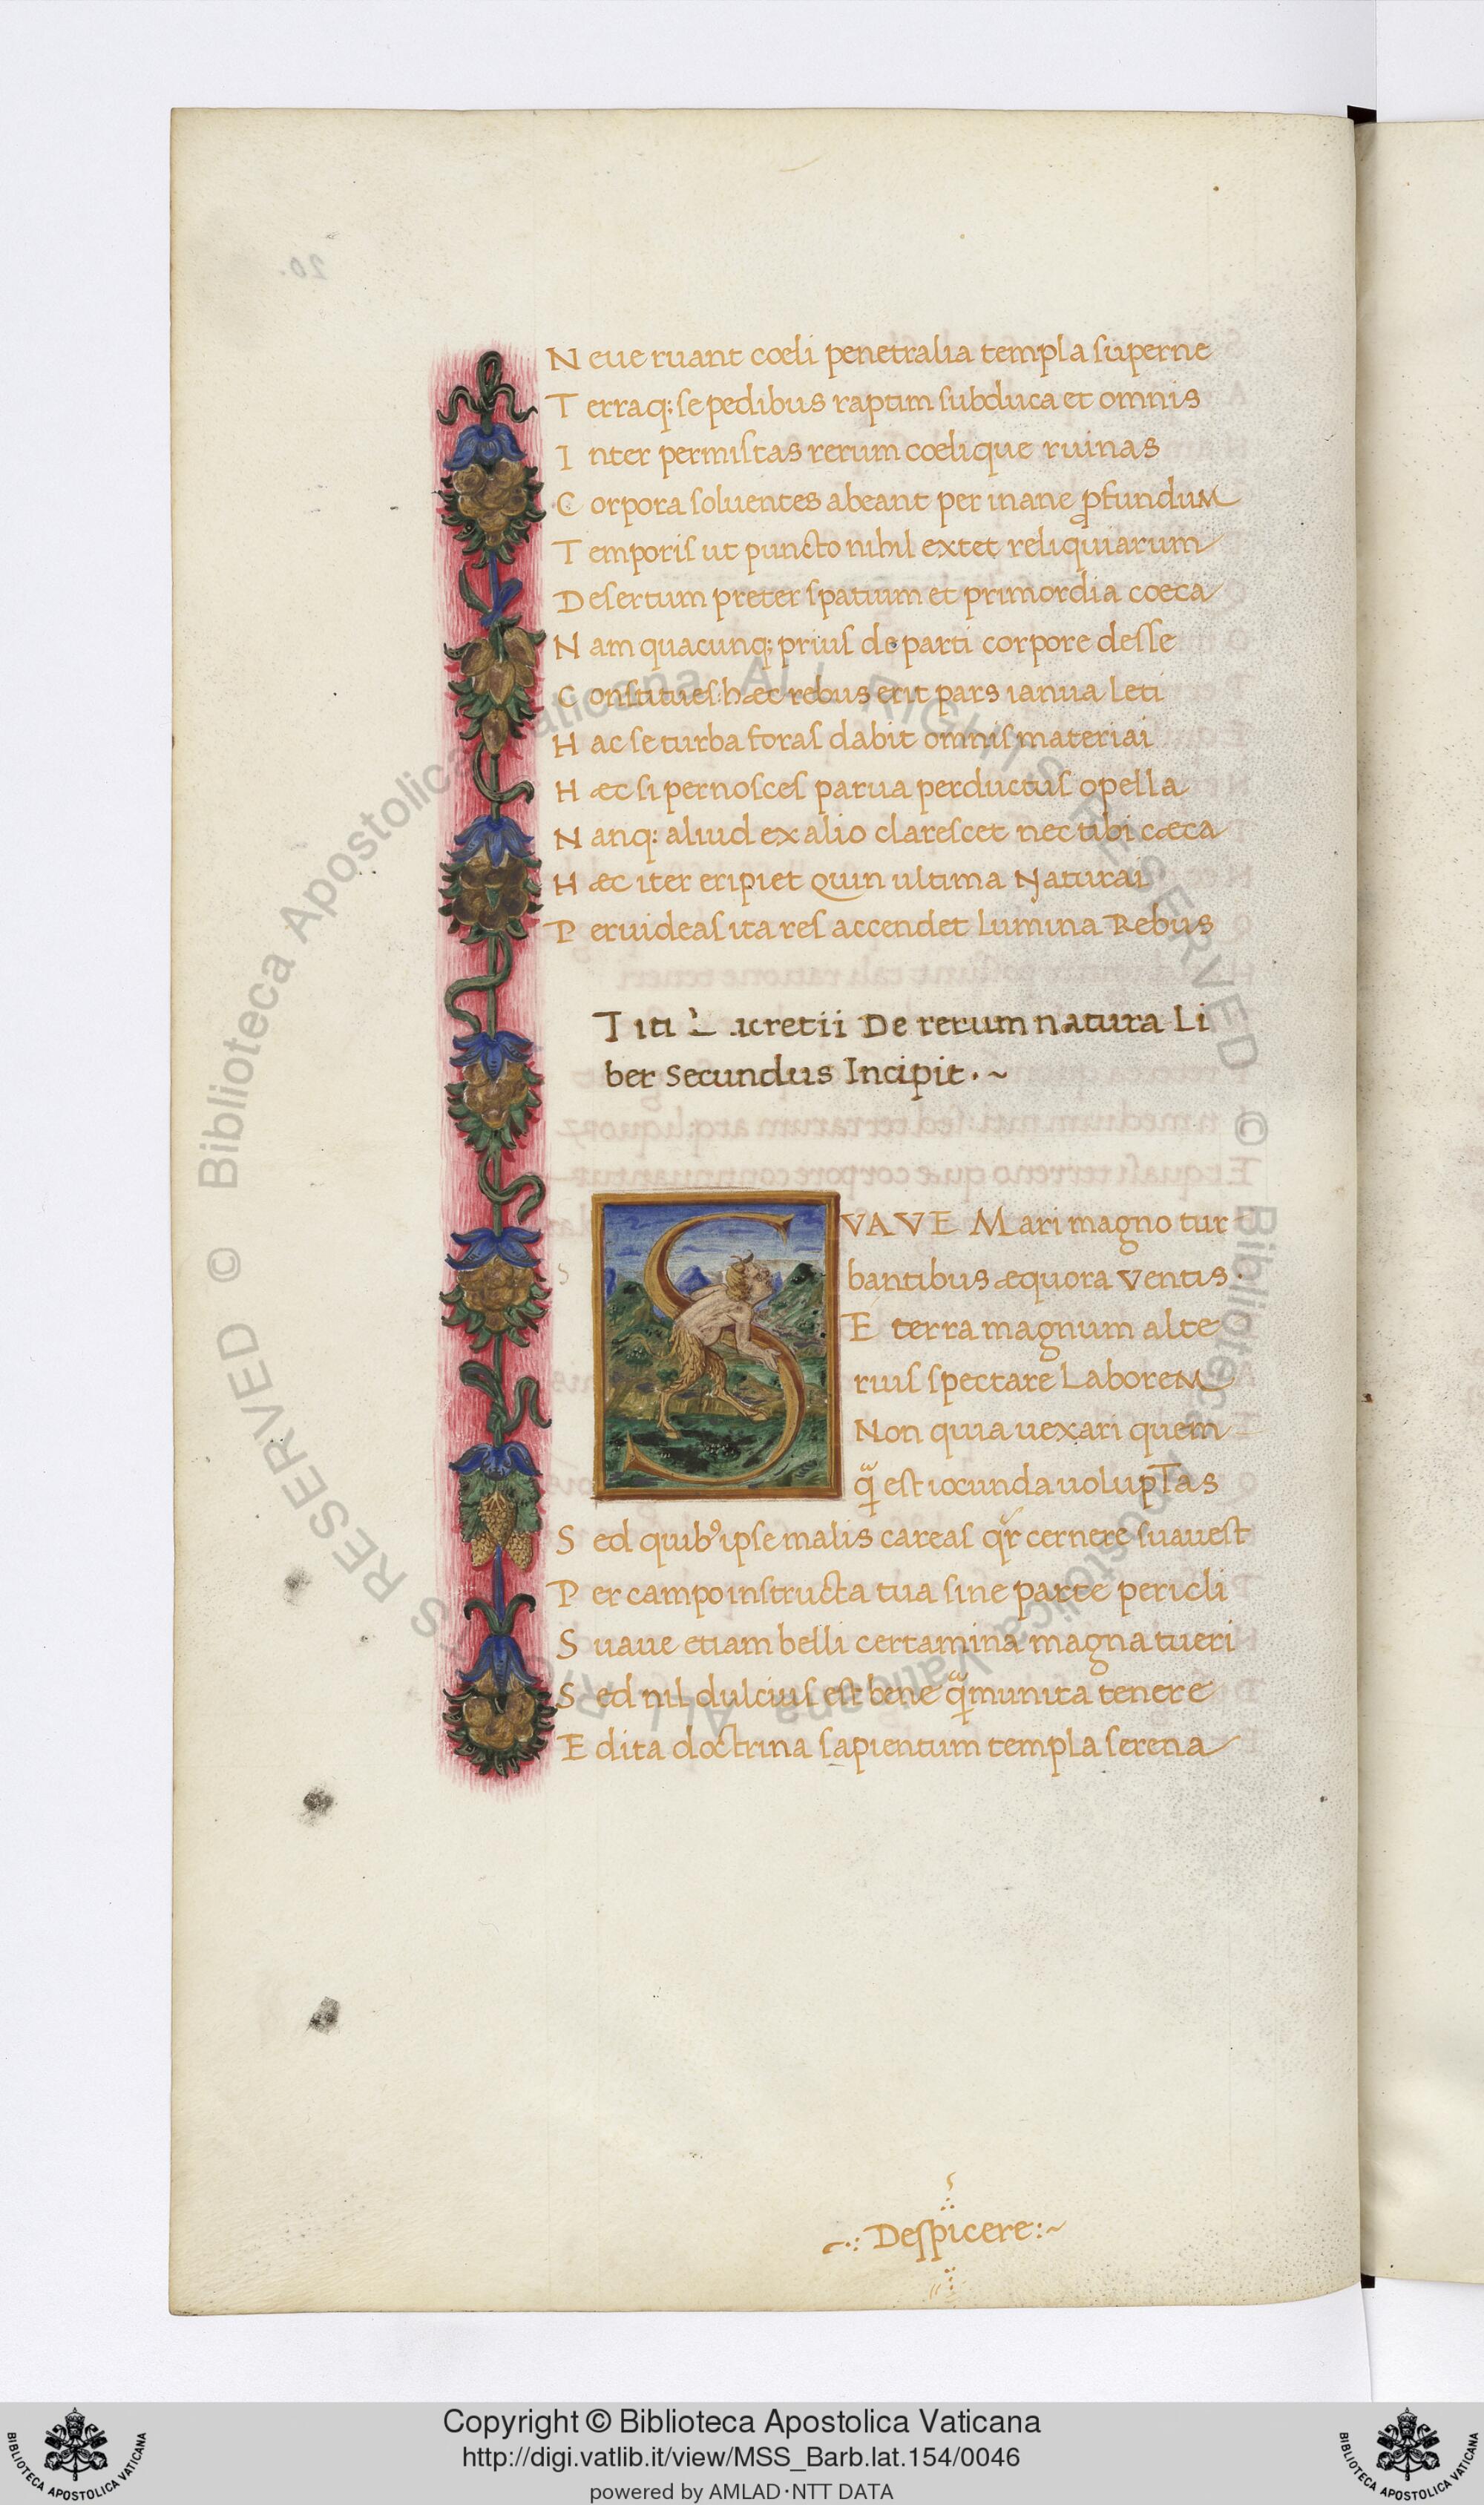 N eue ruant cœli penetralia templa superne
T erraq; se pedibus raptim subduca et omnis
I nter permistas rerum cœlique ruinas
C orpora soluentes abeant per inane ꝓfunduM
T emporis ut puncto nihil extet reliquiarum
D esertum preter spatium et primordia cœca
N am quacunq; prius de parti corpore desse
C onstitues: hæc rebus erit pars ianua leti
H ac se turba foras dabit omnis materiai
H æc si pernosces parua perductus opella
N anq: aliud ex alio clarescet nec tibi cæca
H æc iter eripiet Quin ultima Naturai
P eruideas ita res accendet lumina Rebus
Titi L ucretii De rerum natura Li
ber Secundus Incipit . ~
SVAVE Mari magno tur
bantibus æquora Ventis .
E terra magnum alte
rius spectare LaboreM
Non quia uexari quem
q̃ est iocunda uolupTas
S ed quibꝰ ipse malis careas qr̃ cernere suauest
P er campo instructa tua sine parte pericli
S uaue etiam belli certamina magna tueri
S ed nil dulcius est bene q̃ munita tenere
E dita doctrina sapientum templa serena
Despicere : ~
20.
© Biblioteca Apostolica Vaticana ALL RIGHTS RESERVED
© Biblioteca Apostolica Vaticana ALL RIGHTS RESERVED
Copyright © Biblioteca Apostolica Vaticana
http://digi.vatlib.it/view/MSS_Barb.lat.154/0046
powered by AMLAD·NTT DATA
BIBLIOTECA APOSTOLICA VATICANA
BIBLIOTECA APOSTOLICA VATICANA